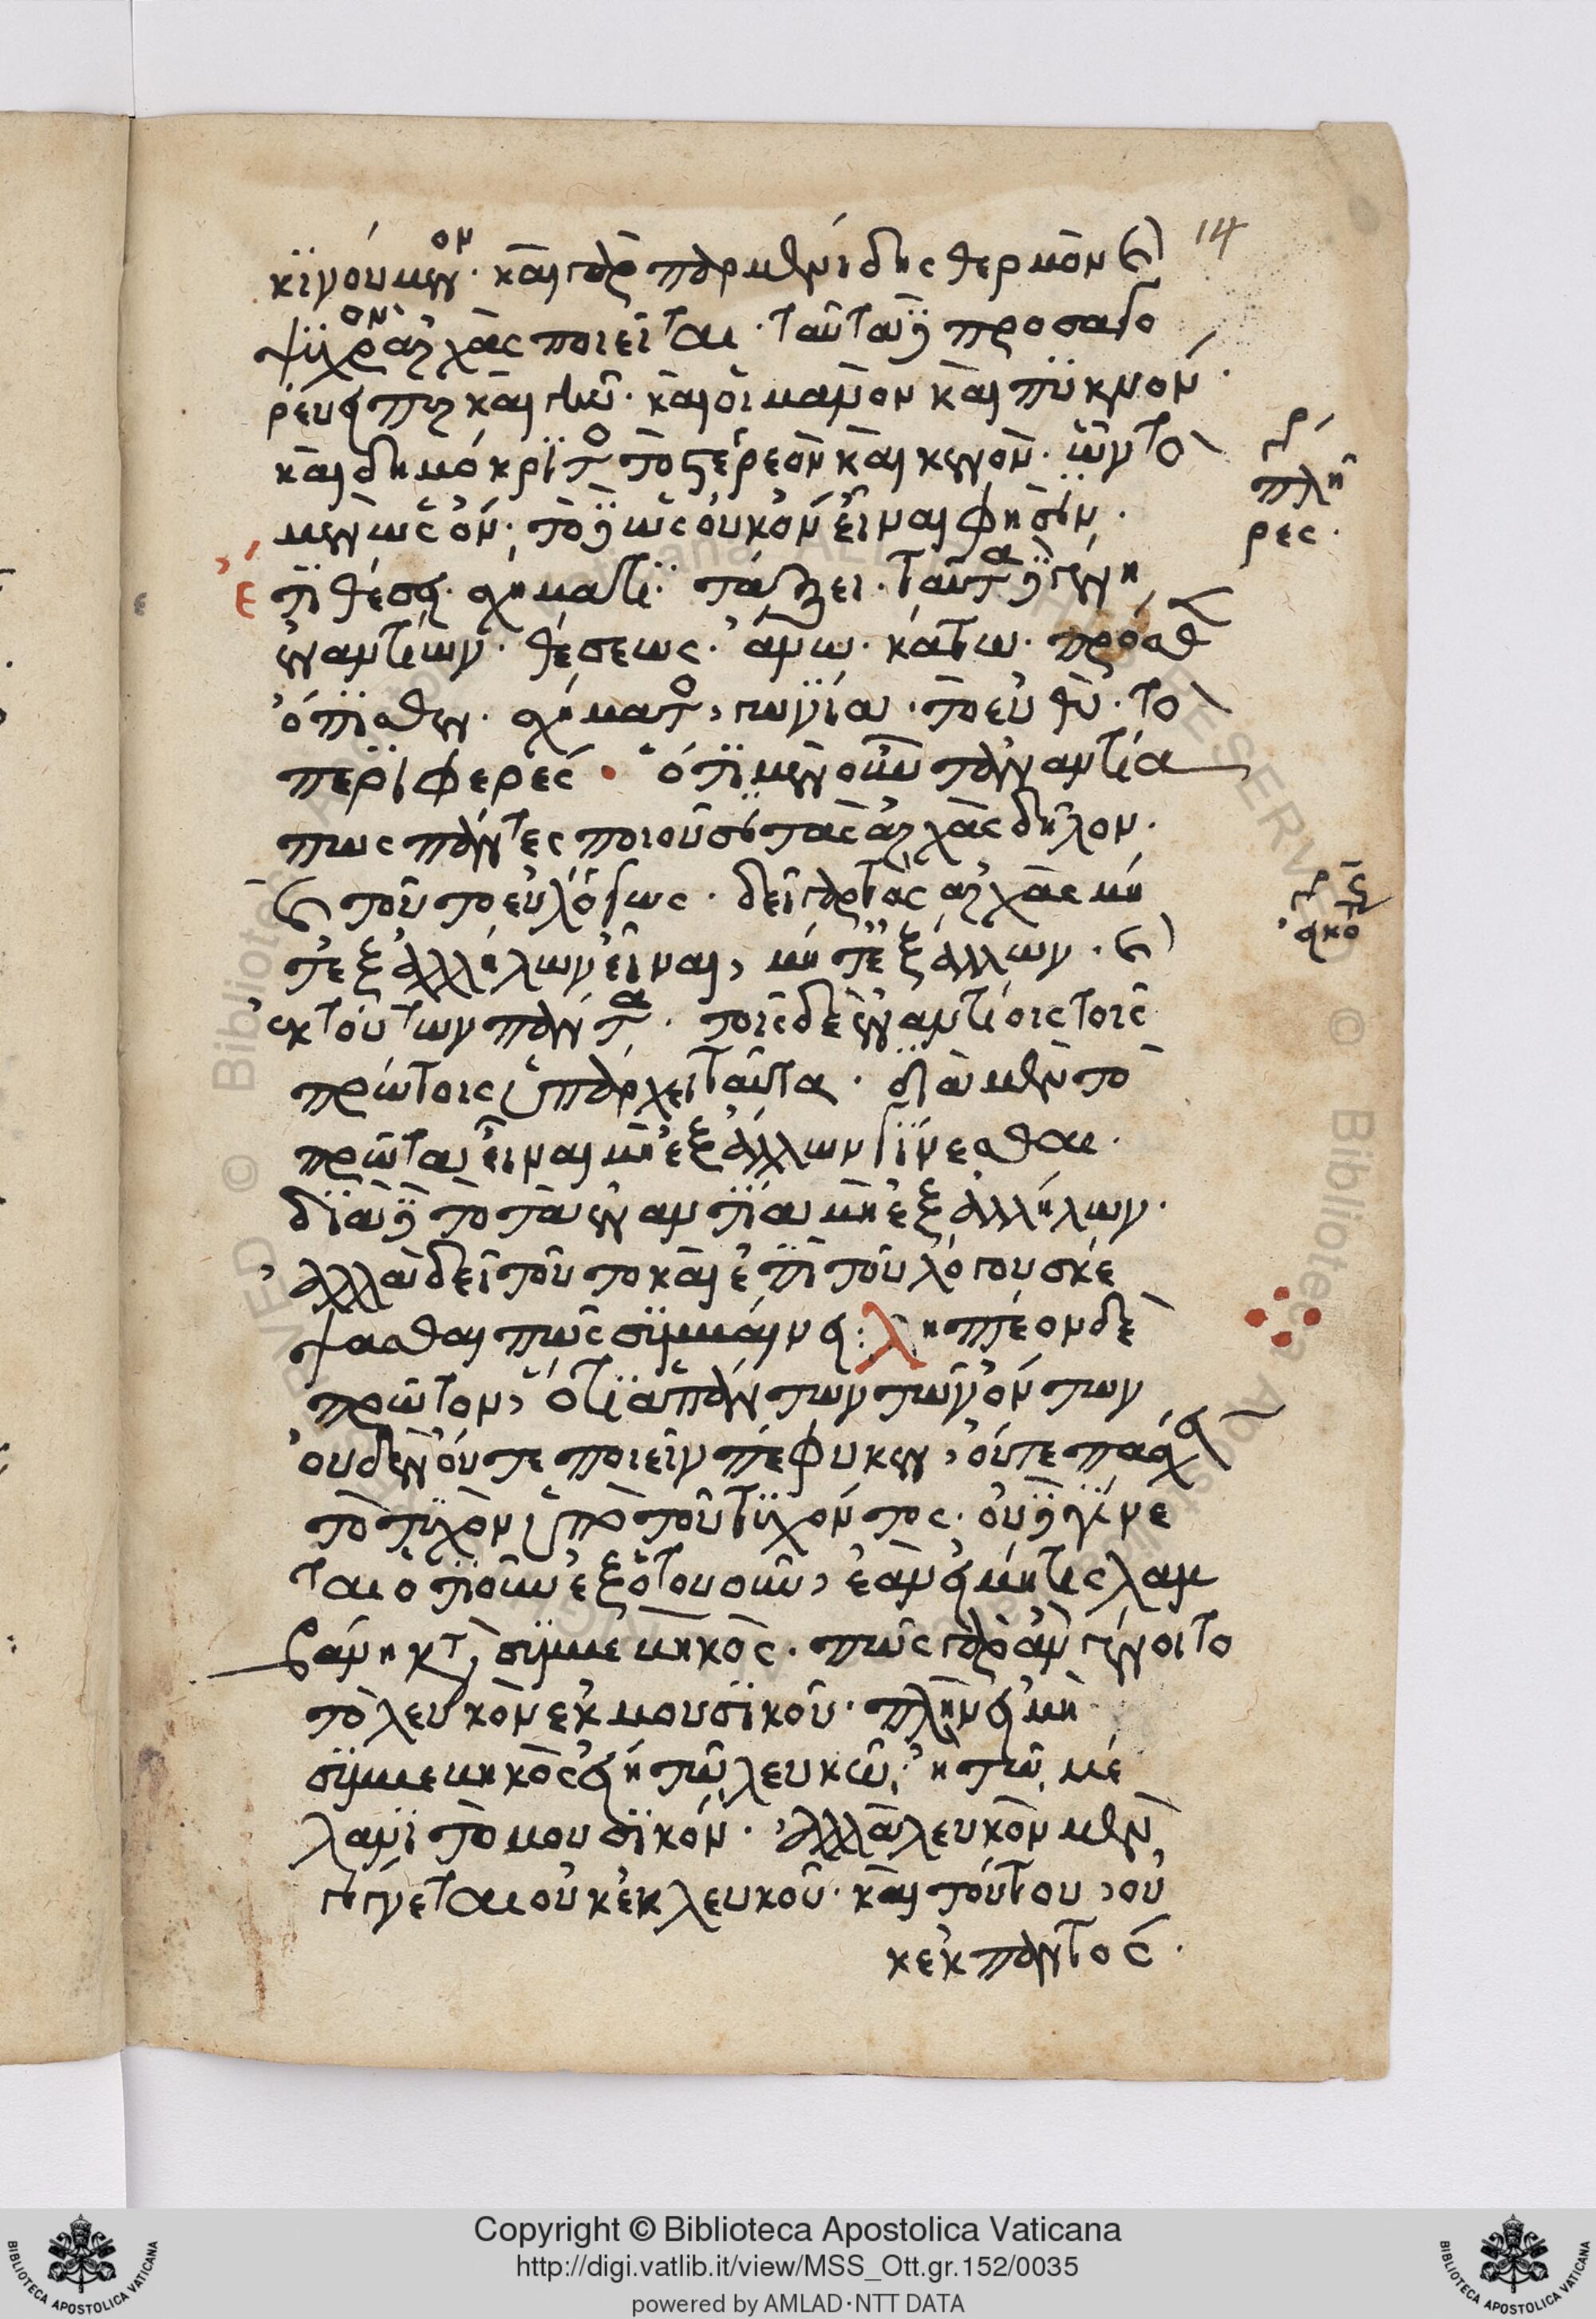 14
κινούμενον. καὶ γὰρ παρμενίδης θερμὸν καὶ
ψυχρὸν ἀρχὰς ποιεῖται. ταῦτα δὲ προσαγο
ρεύει πῦρ καὶ γῆν. καὶ οἱ μανὸν καὶ πυκνόν.
καὶ δημόκριτος τὸ στερεὸν καὶ κενὸν. ὧν τὸ
μὲν ὡς ὄν. τὸ δὲ ὡς οὐκ ὄν εἶναι φησὶν.
ἔτι θέσει. σχήματι. τάξει. ταῦτα δὲ γένη
ἐναντίων. θέσεως. ἄνω. κάτω. πρόσθεν
ὄπισθεν. σχήματος, γωνία. τὸ εὐθὺ. τὸ
περιφερές. ὅτι μὲν οὖν τἀναντία
πως πάντες ποιοῦσι τὰς ἀρχὰς δῆλον.
καὶ τοῦτο εὐλόγως. δεῖ γὰρ τὰς ἀρχὰς μή
τε ἐξ ἀλλήλων εἶναι, μήτε ἐξ ἄλλων. καὶ
ἐκ τούτων πάντα. τοῖς δὲ ἐναντίοις τοῖς
πρώτοις ὑπάρχει ταῦτα. διὰ μὲν τὸ
πρῶτα εἶναι μὴ ἐξ ἄλλων γίνεσθαι.
διὰ δὲ τὸ τὰ ἐναντία μὴ ἐξ ἀλλήλων.
ἀλλὰ δεῖ τοῦτο καὶ ἐπὶ τοῦ λόγου σκέ
ψασθαι πῶς συμβαίνει. ληπτέον δὲ
πρῶτον, ὅτι ἁπάντων τῶν ὄντων
οὐδὲν οὔτε ποιεῖν πέφυκεν, οὔτε πάσχειν
τὸ τυχὸν ὑπὸ τοῦ τυχόντος. οὐδὲ γίνε
ται ὁτιοῦν ἐξ ὁτουοῦν, ἐὰν εἰ μή τις λαμ
βάνη κατὰ συμβεβηκὸς. πῶς γὰρ ἂν γένοιτο
τὸ λευκὸν ἐκ μουσικοῦ. πλὴν εἰ μὴ
συμβεβηκὸς εἴη τῶ λευκῶ, ἢ τῶ μέ
λανι τὸ μουσικόν. ἀλλὰ λευκὸν μὲν
γίνεται οὐκ ἐκ λευκοῦ. καὶ τούτου, οὐ
κ ἐκ παντός.
πλῆ
ρες.
Copyright © Biblioteca Apostolica Vaticana
http://digi.vatlib.it/view/MSS_Ott.gr.152/0035
powered by AMLAD·NTT DATA